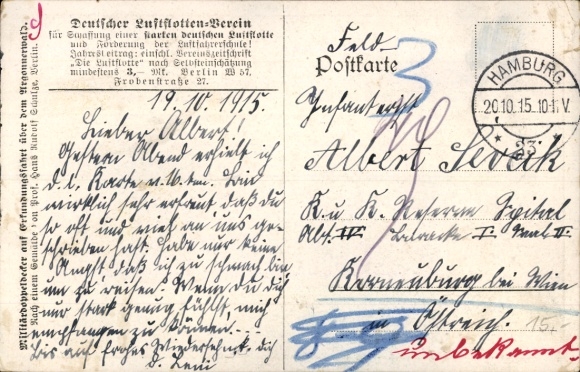 Deutscher Luftflotten-Verein
für Schaffung einer starken deutschen Luftflotte
und Förderung der Luftfahrerschule!
Jahresbeitrag: einschl. Vereinszeitschrift
"Die Luftflotte" nach Selbsteinschätzung
mindestens 3,- Mk. Berlin W 57,
Frobenstraße 27.
Militärdoppeldecker auf Erkundungsfahrt über dem Argonnerwald.
Nach einem Gemälde von Prof. Hans Rudolf Schulze, Berlin.
19.10.1915.
Lieber Albert!
Gestern Abend erhielt ich
d. l. Karte v. 16. ten. Bin
wirklich sehr erfreut daß du
so oft und viel an uns ge-
schrieben hast. Habe nur keine
Angst daß ich zu schwach bin
um zu reisen. Wenn Du dich
nur stark genug fühlst, mich
empfangen zu können...
Bis auf frohes Wiedersehn k. dich
d. Leni
Feld-
Postkarte
HAMBURG
20.10.15.10-11.V.
Infanterist
Albert Sevcik
K. u K. Reserve Spital
Abt. IV Baracke I Saal II
Korneuburg bei Wien
in Östreich.
15,-
unbekannt